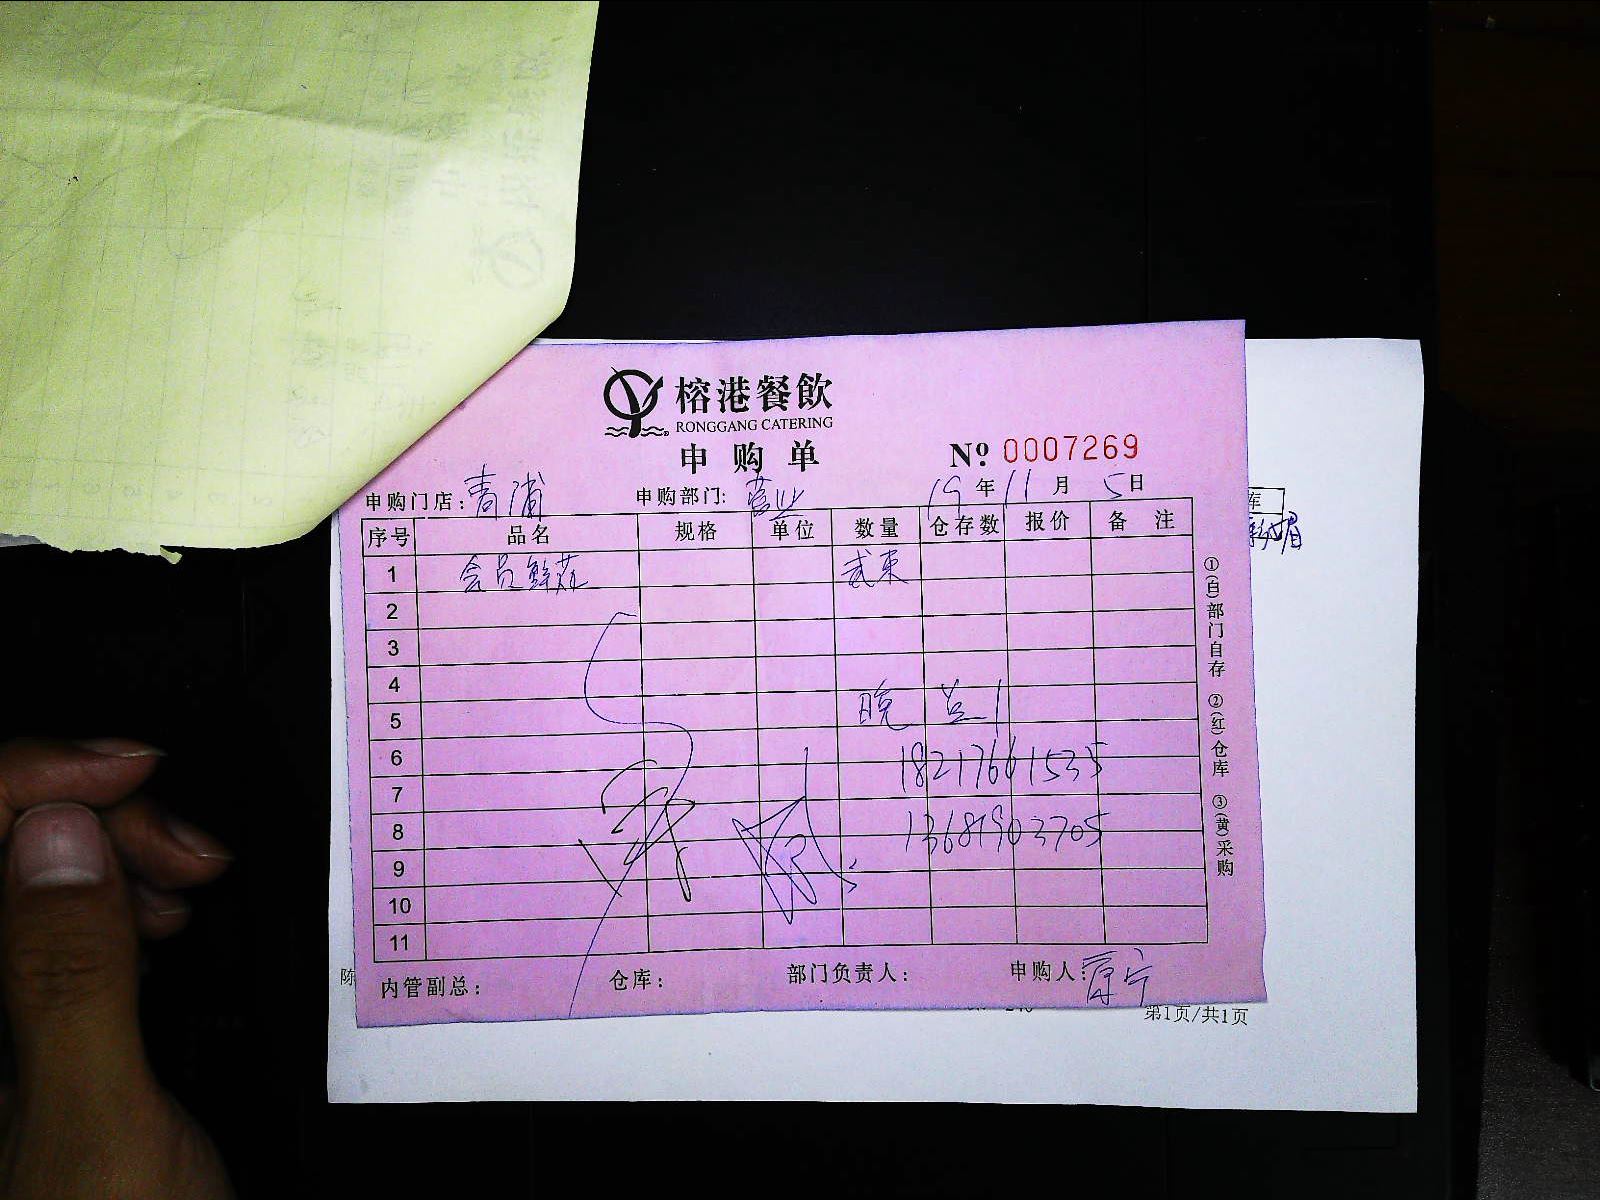 榕港餐飲
RONGGANG CATERING
申购单
Nº 0007269
申购门店:青浦 申购部门:营业 19年11月5日
序号 品名 规格 单位 数量 仓存数 报价 备注
1 会员鲜花 贰束
2
3
4
5 晚
6 18217661535
7
8 13681903705
9
10
11
内管副总: 仓库: 部门负责人: 申购人:
①(白)部门自存 ②(红)仓库 ③(黄)采购
库
陈
第1页/共1页